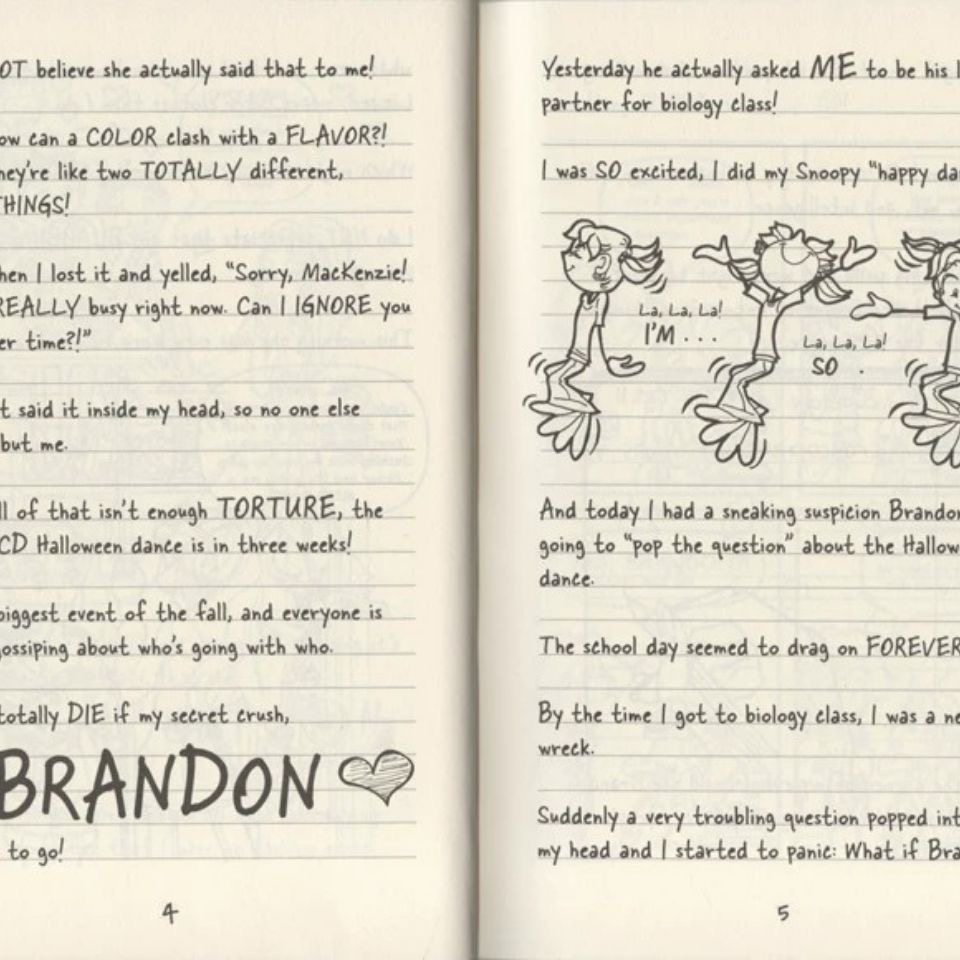 OT believe she actually said that to me!
ow can a COLOR clash with a FLAVOR?!
hey're like two TOTALLY different,
THINGS!
hen I lost it and yelled, "Sorry, MacKenzie!
REALLY busy right now. Can I IGNORE you
er time?!"
t said it inside my head, so no one else
but me.
ll of that isn't enough TORTURE, the
CD Halloween dance is in three weeks!
biggest event of the fall, and everyone is
gossiping about who's going with who.
totally DIE if my secret crush,
BRANDON
to go!
4
Yesterday he actually asked ME to be his l
partner for biology class!
I was SO excited, I did my Snoopy "happy da
La, La, La!
I'M . . .
La, La, La!
SO .
And today I had a sneaking suspicion Brandon
going to "pop the question" about the Hallow
dance.
The school day seemed to drag on FOREVER
By the time I got to biology class, I was a ne
wreck.
Suddenly a very troubling question popped int
my head and I started to panic: What if Bra
5